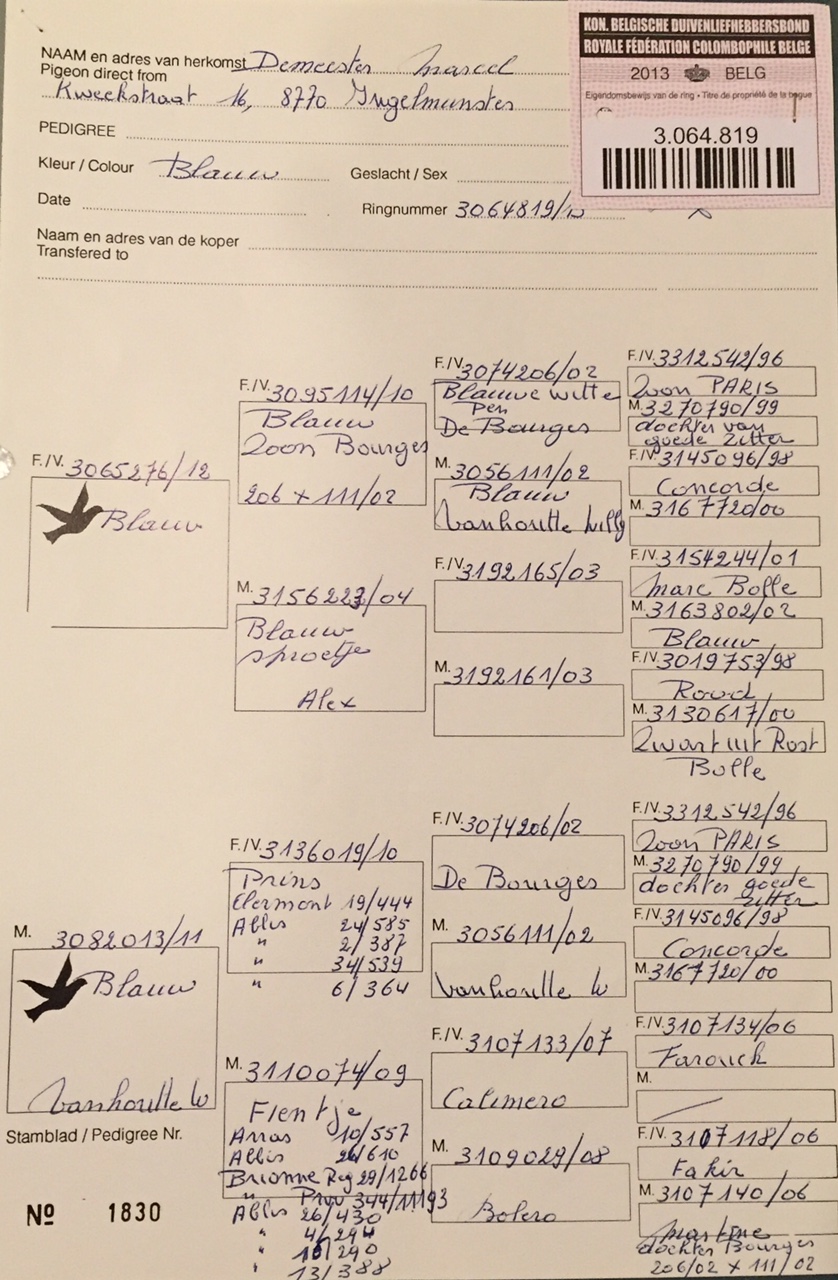 NAAM en adres van herkomst Demeester Marcel
Pigeon direct from
Kweekstraat 16, 8770 Ingelmunster
PEDIGREE
Kleur / Colour Blauw Geslacht / Sex
Date Ringnummer 3064819/13
Naam en adres van de koper
Transfered to
KON. BELGISCHE DUIVENLIEFHEBBERSBOND
ROYALE FÉDÉRATION COLOMBOPHILE BELGE
2013 BELG
Eigendomsbewijs van de ring • Titre de propriété de la bague
3.064.819
F./V. 3065276/12
Blauw
F./V. 3095114/10
Blauw
Zoon Bourges
206 x 111/02
M. 3156223/04
Blauw
sproetje
Alex
F./V. 3074206/02
Blauwe witte
pen
De Bourges
M. 3056111/02
Blauw
Vanhoutte Willy
F./V. 3192165/03
M. 3192161/03
F./V. 3312542/96
Zoon PARIS
M. 3270790/99
dochter van
goede Zitter
F./V. 3145096/98
Concorde
M. 3167720/00
F./V. 3154244/01
Marc Bolle
M. 3163802/02
Blauw
F./V. 3019753/98
Rood
M. 3130617/00
Zwart uit Rost
Bolle
M. 3082013/11
Blauw
Vanhoutte W
F./V. 3136019/10
Prins
Clermont 19/444
Ablis 24/585
" 2/387
" 34/539
" 6/364
M. 3110074/09
Fientje
Arras 10/557
Ablis 26/610
Brionne Reg 29/1266
" Prov 344/11193
Ablis 26/430
" 4/294
" 10/290
" 13/388
F./V. 3074206/02
De Bourges
M. 3056111/02
Vanhoutte W
F./V. 3107133/07
Calimero
M. 3109029/08
Bolero
F./V. 3312542/96
Zoon PARIS
M. 3270790/99
dochter goede
zitter
F./V. 3145096/98
Concorde
M. 3167720/00
F./V. 3107134/06
Farouck
M.
F./V. 3107118/06
Fakir
M. 3107140/06
Martine
dochter Bourges
206/02 x 111/02
Stamblad / Pedigree Nr.
Nº 1830